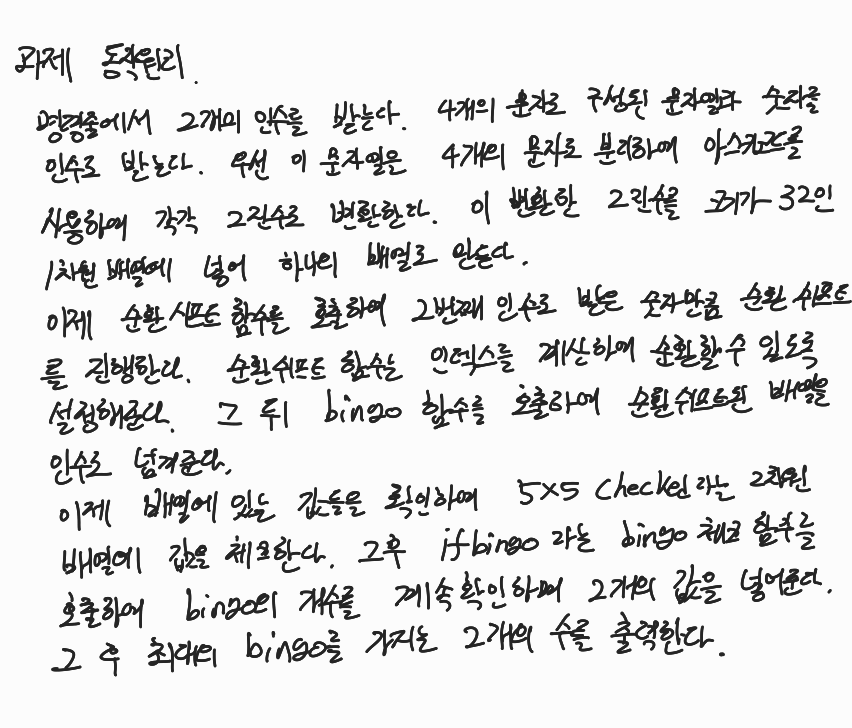 과제 동작원리.
명령줄에서 2개의 인수를 받는다. 4개의 문자로 구성된 문자열과 숫자를
인수로 받는다. 우선 이 문자열을 4개의 문자로 분리하여 아스키코드를
사용하여 각각 2진수로 변환한다. 이 변환한 2진수를 크기가 32인
1차원 배열에 넣어 하나의 배열로 만든다.
이제 순환 시프트 함수를 호출하여 2번째 인수로 받은 숫자만큼 순환 쉬프트
를 진행한다. 순환쉬프트 함수는 인덱스를 계산하여 순환할 수 있도록
설정해준다. 그 뒤 bingo 함수를 호출하여 순환쉬프트된 배열을
인수로 넘겨준다.
이제 배열에 있는 값들을 확인하여 5×5 check인라는 2차원
배열에 값을 체크한다. 그후 ifbingo 라는 bingo 체크 함수를
호출하여 bingo의 개수를 계속 확인하며 2개의 값을 넣어준다.
그 후 최대의 bingo를 가지는 2개의 수를 출력한다.